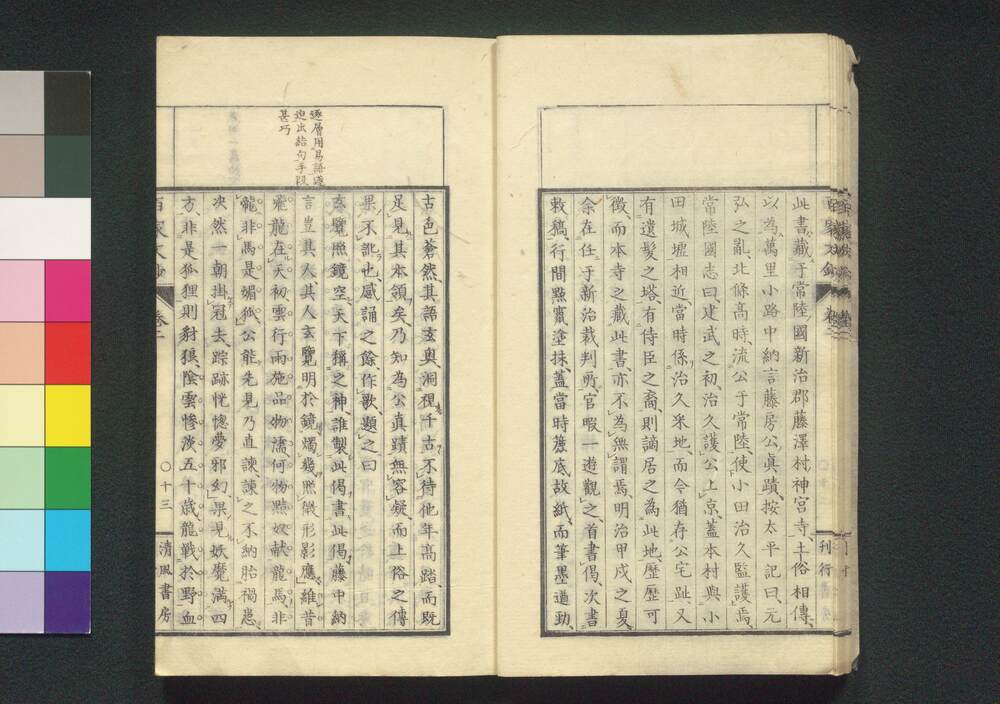 此書、藏于常陸國新治郡藤澤村神宮寺、土俗相傳、
以為萬里小路中納言藤房公眞蹟、按太平記曰、元
弘之亂、北條高時、流公于常陸、使小田治久監護焉、
常陸國志曰、建武之初、治久護公上京、蓋本村與小
田城墟相近、當時係治久采地、而今猶存公宅趾、又
有遺髮之塔、有侍臣之裔、則謫居之為此地、歷歷可
徵、而本寺之藏此書、亦不為無謂焉、明治甲戌之夏、
余在任于新治裁判所、官暇一遊觀之、首書偈、次書
敕稿、行間點竄塗抹、蓋當時簏底故紙、而筆墨遒勁、
逐層用易語遂
迫出結句手段
甚巧
古色蒼然、其語玄奧、洞視千古、不待他年高踏、而既
足見其本領矣、乃知為公眞蹟無容疑、而土俗之傳
果不訛也、感誦之餘、作歌題之曰
玄覽照鏡空天下稱之神誰製此偈書此偈藤中納
言豈其人其人玄覽明於鏡燭幾照微形影應維昔
飛龍在天初雲行雨施品物濡何物黠奴献龍馬非
龍非馬是媚狐公能先見乃直諫諫之不納胎禍患
决然一朝掛冠去踪跡恍惚夢邪幻果見妖魔滿四
方、非是狐狸則豺狼陰雲慘淡五十歲龍戰於野血
百家文鈔 卷二 ○十三 清風書房
刊行